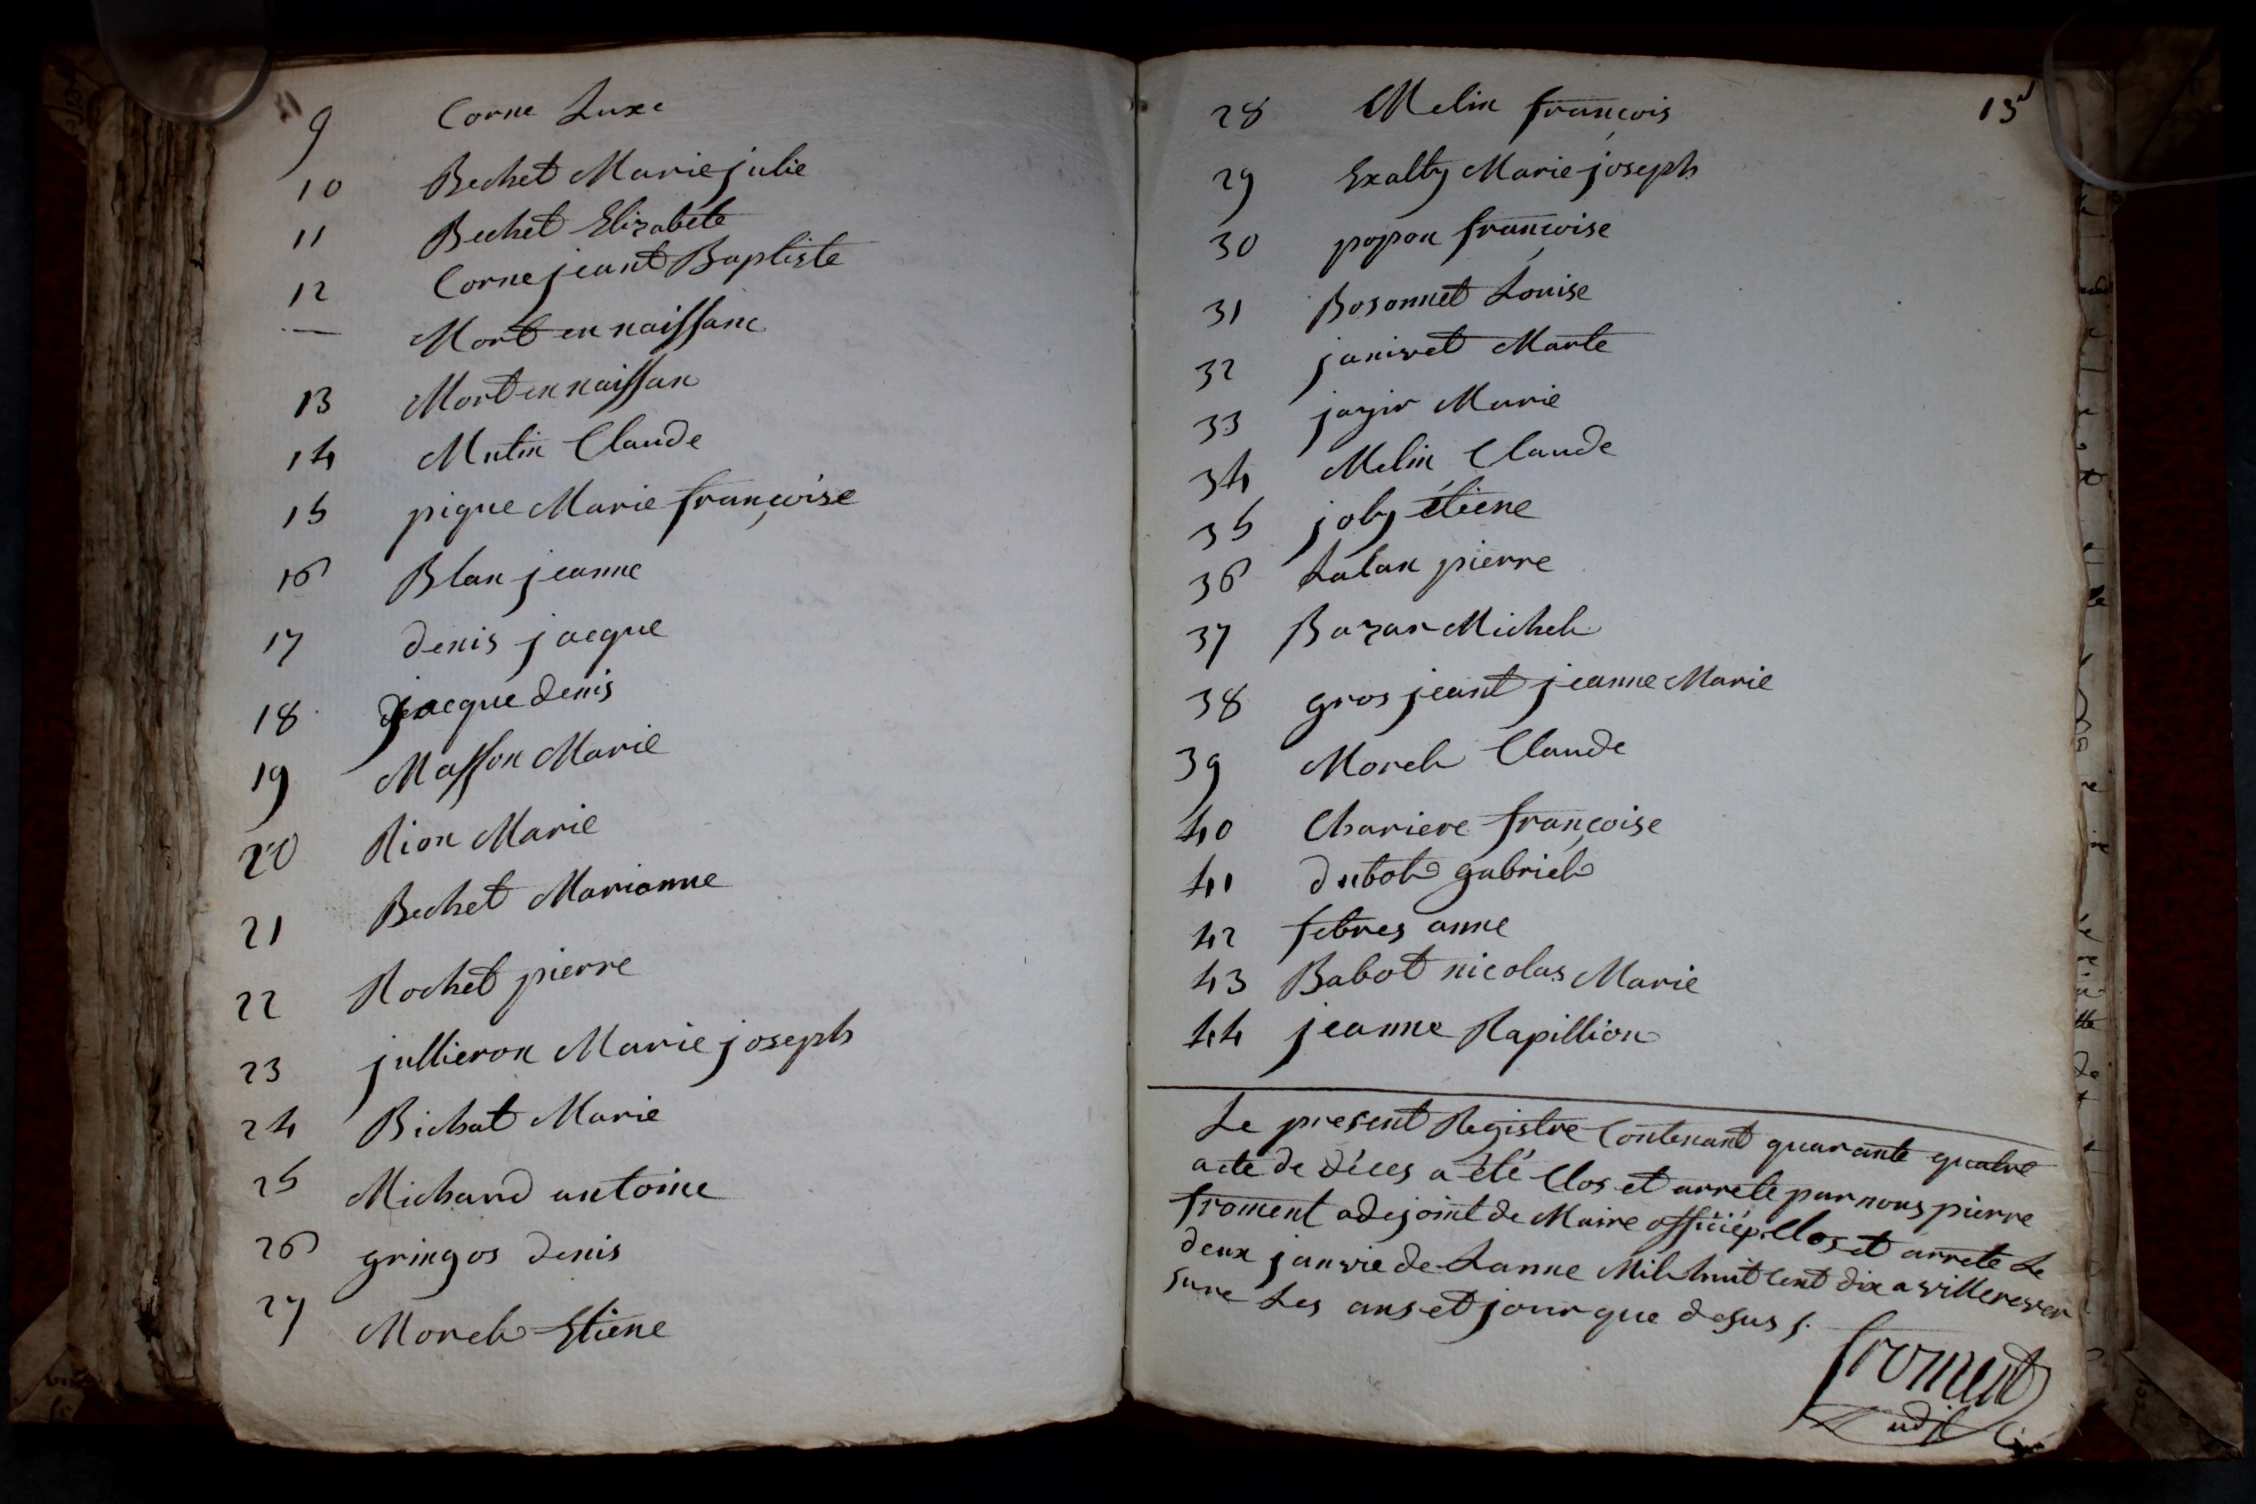 9 Corne Luxe
10 Bechet Marie julie
11 Bechet Elizabete
12 Corne jeant Baptiste
— Mort en naissanc
13 Mort en naissan
14 Mutin Claude
15 pique Marie françoise
16 Blan jeanne
17 denis jacque
18 jacque denis
19 Masson Marie
20 Rion Marie
21 Bechet Marianne
22 Rochet pierre
23 jullieron Marie joseph
24 Bichat Marie
25 Michard antoine
26 gringos denis
27 Morel Etiene
15
28 Melin françois
29 Exalty Marie joseph
30 popon françoise
31 Bosonnet Louise
32 janivet Marte
33 Marie
34 Melin Claude
35 joly étiene
36 Lalan pierre
37 Bazan Michel
38 gros jeant jeanne Marie
39 Morel Claude
40 Chariere françoise
41 dubot gabriel
42 febres anne
43 Babot nicolas Marie
44 jeanne Rapillion
Le present Registre Contenant quarante quatre
acte de déces a été Clos et arrete par nous pierre
froment adejoint de Maire Clos et arrete Le
deux janvie de Lanne Mil huit Cent dix a villerever
sure Les ans et jour que desus
froment
adj